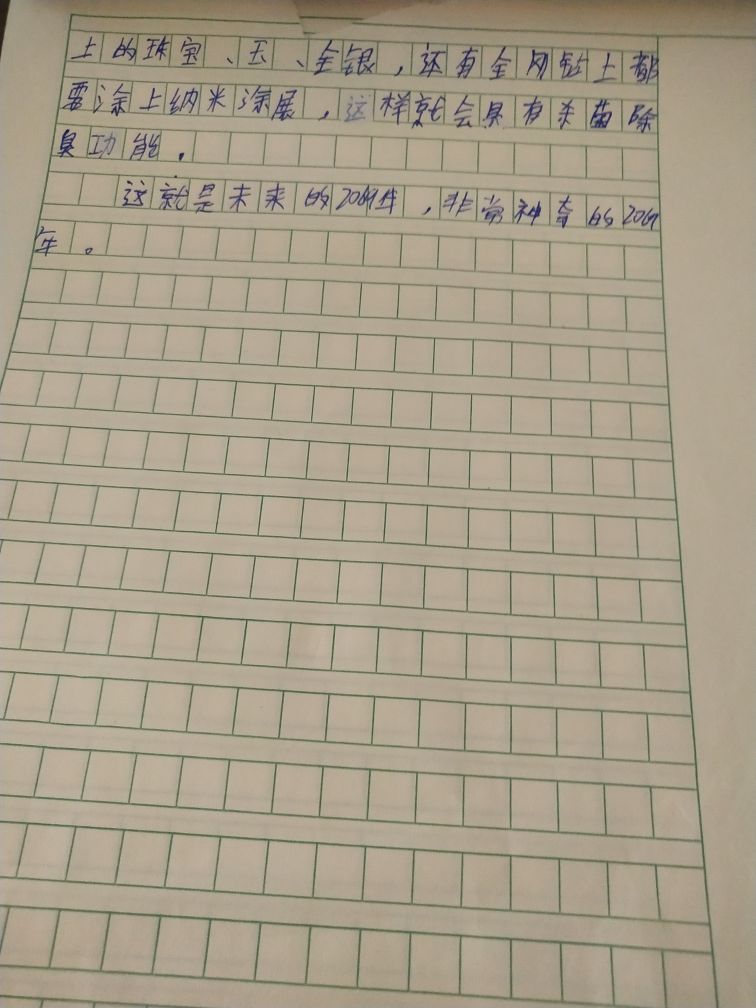 上的珠宝、玉、金银，还有金刚钻上都
要涂上纳米涂展，这样就会具有杀菌除
臭功能。
这就是未来的2069年，非常神奇的2069
年。